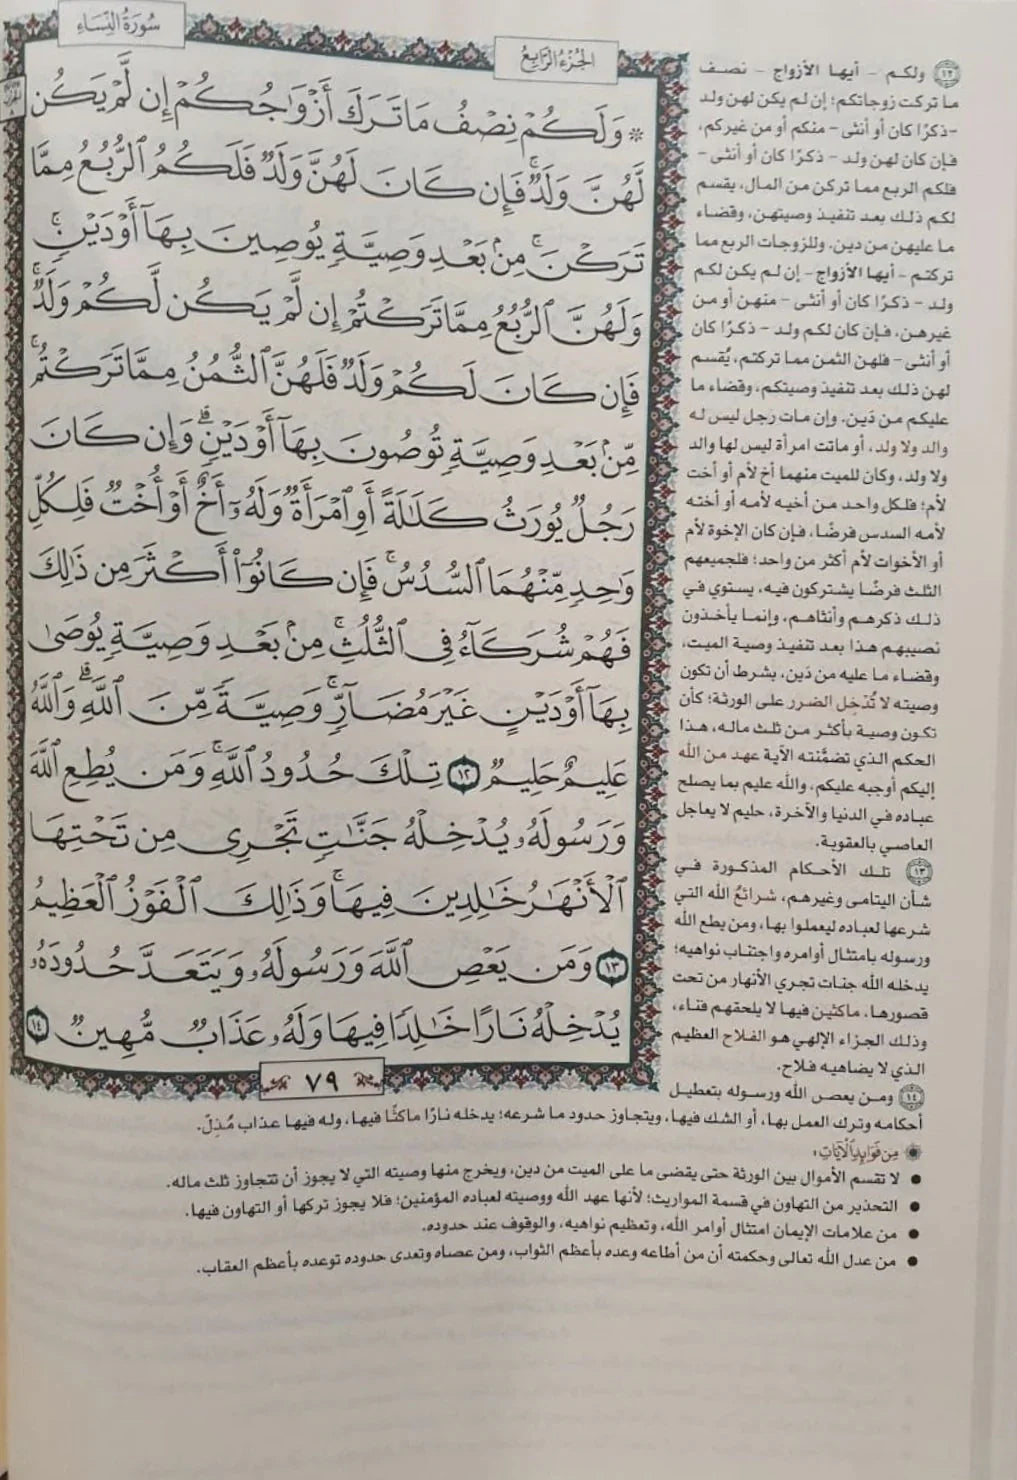 سُورَةُ النِّسَاءِ
الجُزْءُ الرَّابِعُ
۞ وَلَكُمْ نِصْفُ مَا تَرَكَ أَزْوَٰجُكُمْ إِن لَّمْ يَكُن
لَّهُنَّ وَلَدٌۚ فَإِن كَانَ لَهُنَّ وَلَدٌ فَلَكُمُ ٱلرُّبُعُ مِمَّا
تَرَكْنَۚ مِنۢ بَعْدِ وَصِيَّةٍ يُوصِينَ بِهَآ أَوْ دَيْنٍۚ
وَلَهُنَّ ٱلرُّبُعُ مِمَّا تَرَكْتُمْ إِن لَّمْ يَكُن لَّكُمْ وَلَدٌۚ
فَإِن كَانَ لَكُمْ وَلَدٌ فَلَهُنَّ ٱلثُّمُنُ مِمَّا تَرَكْتُمۚ
مِّنۢ بَعْدِ وَصِيَّةٍ تُوصُونَ بِهَآ أَوْ دَيْنٍۗ وَإِن كَانَ
رَجُلٌ يُورَثُ كَلَٰلَةً أَوِ ٱمْرَأَةٌ وَلَهُۥٓ أَخٌ أَوْ أُخْتٌ فَلِكُلِّ
وَٰحِدٍ مِّنْهُمَا ٱلسُّدُسُۚ فَإِن كَانُوٓا۟ أَكْثَرَ مِن ذَٰلِكَ
فَهُمْ شُرَكَآءُ فِى ٱلثُّلُثِۚ مِنۢ بَعْدِ وَصِيَّةٍ يُوصَىٰ
بِهَآ أَوْ دَيْنٍ غَيْرَ مُضَآرٍّۚ وَصِيَّةً مِّنَ ٱللَّهِۗ وَٱللَّهُ
عَلِيمٌ حَلِيمٌ ١٢ تِلْكَ حُدُودُ ٱللَّهِۚ وَمَن يُطِعِ ٱللَّهَ
وَرَسُولَهُۥ يُدْخِلْهُ جَنَّٰتٍ تَجْرِى مِن تَحْتِهَا
ٱلْأَنْهَٰرُ خَٰلِدِينَ فِيهَاۚ وَذَٰلِكَ ٱلْفَوْزُ ٱلْعَظِيمُ
١٣ وَمَن يَعْصِ ٱللَّهَ وَرَسُولَهُۥ وَيَتَعَدَّ حُدُودَهُۥ
يُدْخِلْهُ نَارًا خَٰلِدًا فِيهَا وَلَهُۥ عَذَابٌ مُّهِينٌ ١٤
٧٩
١٢ ولكم - أيها الأزواج - نصف
ما تركت زوجاتكم؛ إن لم يكن لهن ولد
-ذكرًا كان أو أنثى - منكم أو من غيركم،
فإن كان لهن ولد - ذكرًا كان أو أنثى -
فلكم الربع مما تركن من المال، يقسم
لكم ذلك بعد تنفيذ وصيتهن، وقضاء
ما عليهن من دين. وللزوجات الربع مما
تركتم - أيها الأزواج - إن لم يكن لكم
ولد - ذكرًا كان أو أنثى - منهن أو من
غيرهن، فإن كان لكم ولد - ذكرًا كان
أو أنثى - فلهن الثمن مما تركتم، يُقسم
لهن ذلك بعد تنفيذ وصيتكم، وقضاء ما
عليكم من دَين. وإن مات رجل ليس له
والد ولا ولد، أو ماتت امرأة ليس لها والد
ولا ولد، وكان للميت منهما أخ لأم أو أخت
لأم؛ فلكل واحد من أخيه لأمه أو أخته
لأمه السدس فرضًا، فإن كان الإخوة لأم
أو الأخوات لأم أكثر من واحد؛ فلجميعهم
الثلث فرضًا يشتركون فيه، يستوي في
ذلك ذكرهم وأنثاهم، وإنما يأخذون
نصيبهم هذا بعد تنفيذ وصية الميت،
وقضاء ما عليه من دَين، بشرط أن تكون
وصيته لا تُدْخِل الضرر على الورثة؛ كأن
تكون وصية بأكثر من ثلث ماله، هذا
الحكم الذي تضمَّنته الآية عهد من الله
إليكم أوجبه عليكم، والله عليم بما يصلح
عباده في الدنيا والآخرة، حليم لا يعاجل
العاصي بالعقوبة.
١٣ تلك الأحكام المذكورة في
شأن اليتامى وغيرهم، شرائعُ الله التي
شرعها لعباده ليعملوا بها، ومن يطع الله
ورسوله بامتثال أوامره واجتناب نواهيه؛
يدخله الله جنات تجري الأنهار من تحت
قصورها، ماكثين فيها لا يلحقهم فناء،
وذلك الجزاء الإلهي هو الفلاح العظيم
الذي لا يضاهيه فلاح.
١٤ ومن يعص الله ورسوله بتعطيل
أحكامه وترك العمل بها، أو الشك فيها، ويتجاوز حدود ما شرعه؛ يدخله نارًا ماكثًا فيها، وله فيها عذاب مُذِلّ.
مِن فَوَائِدِ الْآيَاتِ:
• لا تقسم الأموال بين الورثة حتى يقضى ما على الميت من دين، ويخرج منها وصيته التي لا يجوز أن تتجاوز ثلث ماله.
• التحذير من التهاون في قسمة المواريث؛ لأنها عهد الله ووصيته لعباده المؤمنين؛ فلا يجوز تركها أو التهاون فيها.
• من علامات الإيمان امتثال أوامر الله، وتعظيم نواهيه، والوقوف عند حدوده.
• من عدل الله تعالى وحكمته أن من أطاعه وعده بأعظم الثواب، ومن عصاه وتعدى حدوده توعده بأعظم العقاب.